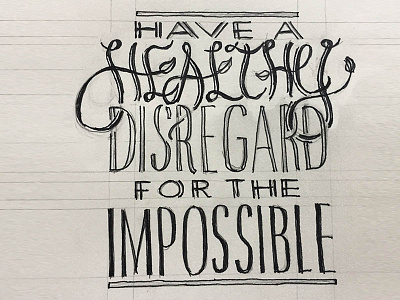 HAVE A
HEALTHY
DISREGARD
FOR THE
IMPOSSIBLE